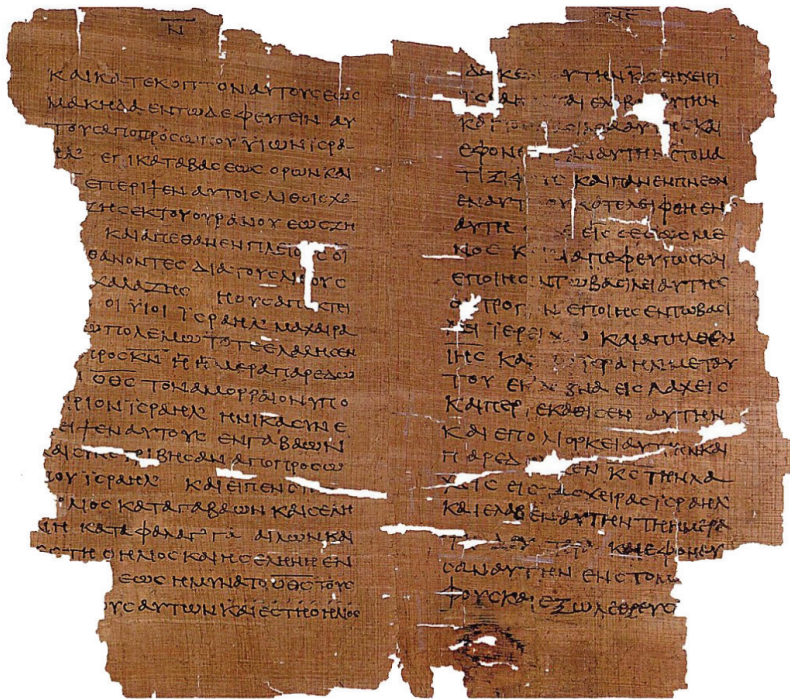 Ν
ΚΑΙΚΑΤΕΚΟΠΤΟΝΑΥΤΟΥϹΕΩϹ
ΜΑΚΗΔΑΕΝΤΩΔΕΦΕΥΓΕΙΝΑΥ
ΤΟΥϹΑΠΟΠΡΟϹΩΠΟΥΥΙΩΝΙϹΡΑ
ΗΛ ΕΠΙΚΑΤΑΒΑϹΕΩϹΟΡΩΝΚΑΙ
ΕΠΕΡΙΨΕΝΑΥΤΟΙϹΛΙΘΟΙϹΧΑ
ΖΗϹΕΚΤΟΥΟΥΡΑΝΟΥΕΩϹΖΗ
ΚΑΙΑΠΕΘΑΝΕΝΠΛΕΙΟΥϹΟΙ
ΘΑΝΟΝΤΕϹΔΙΑΤΟΥϹΛΙΘΟΥϹ
ΧΑΛΑΖΗϹ ΗΟΥϹΑΠΕΚΤΕΙ
ΟΙΥΙΟΙ ΙϹΡΑΗΛΜΑΧΑΙΡΑ
ΩΠΟΛΕΜΩΤΟΤΕΕΛΑΛΗϹΕΝ
ΠΡΟϹΚΝ Η ΗΜΕΡΑΠΑΡΕΔΩ
ΟΘϹ ΤΟΝΑΜΟΡΡΑΙΟΝΥΠΟ
ΡΙΟΝΙϹΡΑΗΛ ΗΝΙΚΑϹΥΝΕ
ΕΙΨΕΝΑΥΤΟΥϹ ΕΝΓΑΒΑΩΝ
ΚΑΙϹΥΝΕΤΡΙΒΗϹΑΝΑΠΟΠΡΟϹΩ
ΠΟΥΙϹΡΑΗΛ ΚΑΙΕΙΠΕΝ
ΗΛΙΟϹΚΑΤΑΓΑΒΑΩΝ ΚΑΙϹΕΛΗ
ΝΗ ΚΑΤΑΦΑΛΑΓΓΑ ΑΙΛΩΝΚΑΙ
ΕϹΤΗΟΗΛΙΟϹΚΑΙΗϹΕΛΗΝΗΕΝ
ΕΩϹΗΜΥΝΑΤΟΟΘϹΤΟΥϹ
ΟΥϹΑΥΤΩΝΚΑΙΕϹΤΗΟΗΛΙΟϹ
ΝΕ
ΔΩΚΕΝ ΑΥΤΗΝΚϹΕΝΧΕΙΡΙ
ΙϹΡΑΗΛ ΚΑΙΕΛΑΒΟΝΑΥΤΗΝ
ΚΑΙ
ΕΦΟΝΕΥϹΑΝΑΥΤΗΝϹΤΟΜΑ
ΤΙΞΙΦΟΥϹ ΚΑΙΠΑΝΕΝΠΝΕΟΝ
ΕΝΑΥΤΗ ΟΥΚΑΤΕΛΕΙΦΘΗΕΝ
ΑΥΤΗ ΟΥΔΕΙϹϹΕϹΩϹΜΕ
ΝΟϹ ΚΑΙΔΙΑΠΕΦΕΥΓΩϹΚΑΙ
ΕΠΟΙΗϹΑΝΤΩΒΑϹΙΛΕΙΑΥΤΗϹ
ΟΝΤΡΟΠΟΝΕΠΟΙΗϹΕΝΤΩΒΑϹΙ
ΛΕΙ ΙΕΡΕΙΧΩ ΚΑΙΑΠΗΛΘΕΝ
ΙΗϹ ΚΑΙ ΙϹΡΑΗΛΜΕΤΟΥ
ΤΟΥ ΕΚ ΛΕΒΝΑ ΕΙϹ ΛΑΧΕΙϹ
ΚΑΙΠΕΡΙΕΚΑΘΙϹΕΝ ΑΥΤΗΝ
ΚΑΙ ΕΠΟΛΙΟΡΚΕΙΑΥΤΗΝΚΑΙ
ΠΑΡΕΔΩΚΕΝ ΚϹΤΗΝΛΑ
ΧΕΙϹ ΕΙϹΤΑϹΧΕΙΡΑϹΙϹΡΑΗΛ
ΚΑΙΕΛΑΒΕΝΑΥΤΗΝΤΗΗΜΕΡΑ
ΤΗ ΔΕΥΤΕΡΑ ΚΑΙΕΦΟΝΕΥ
ϹΑΝΑΥΤΗΝ ΕΝϹΤΟΜΑ
ΦΟΥϹΚΑΙΕΞΩΛΕΘΡΕΥϹ